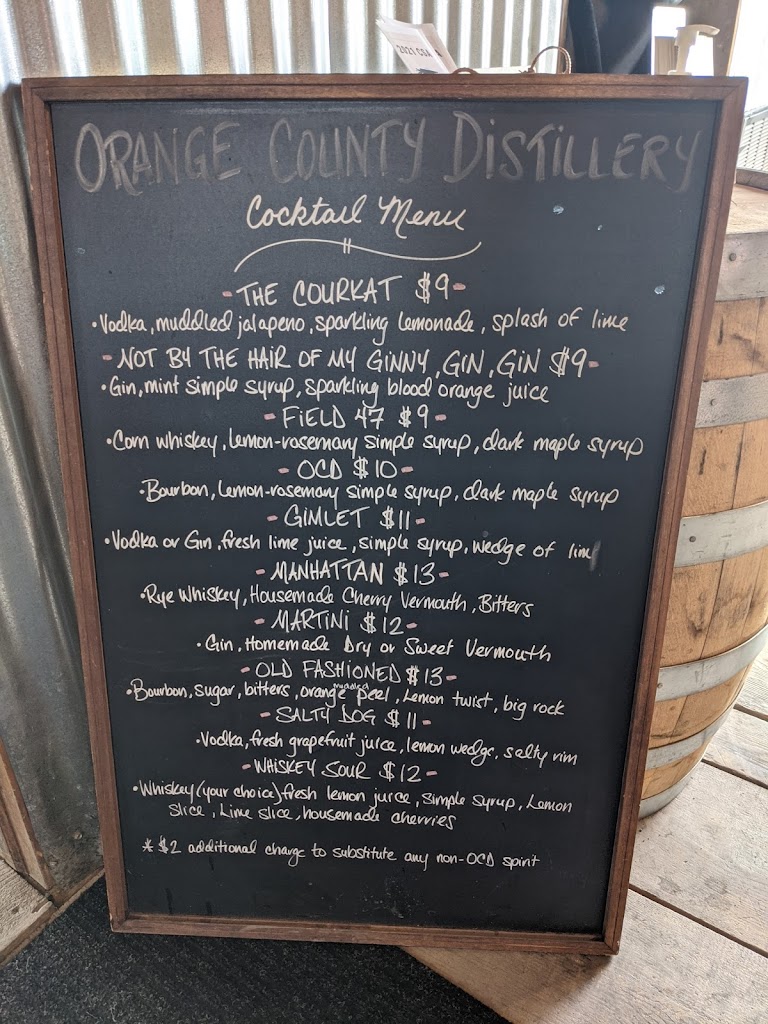 2021 CSA
ORANGE COUNTY DISTILLERY
Cocktail Menu
- THE COURKAT $9 -
• Vodka, muddled jalapeno, sparkling lemonade, splash of lime
- NOT BY THE HAIR OF MY GINNY, GIN, GIN $9 -
• Gin, mint simple syrup, sparkling blood orange juice
- FIELD 47 $9 -
• Corn whiskey, lemon-rosemary simple syrup, dark maple syrup
- OCD $10 -
• Bourbon, lemon-rosemary simple syrup, dark maple syrup
- GIMLET $11 -
• Vodka or Gin, fresh lime juice, simple syrup, wedge of lime
- MANHATTAN $13 -
• Rye Whiskey, Housemade Cherry Vermouth, Bitters
- MARTINI $12 -
• Gin, Homemade Dry or Sweet Vermouth
- OLD FASHIONED $13 -
• Bourbon, sugar, bitters, orange muddled peel, Lemon twist, big rock
- SALTY DOG $11 -
• Vodka, fresh grapefruit juice, lemon wedge, salty rim
- WHISKEY SOUR $12 -
• Whiskey (your choice) fresh lemon juice, simple syrup, Lemon
slice, Lime slice, housemade cherries
* $2 additional charge to substitute any non-OCD spirit